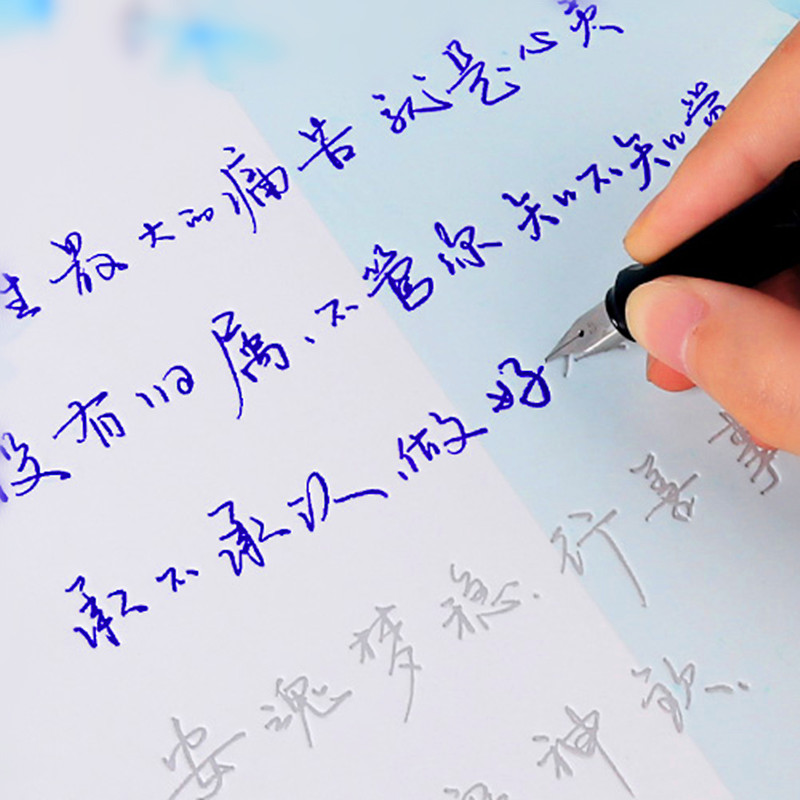 生最大的痛苦就是心灵
没有归属、不管你知不知觉
承不承认,做好
安魂梦稳.行善
神钦.